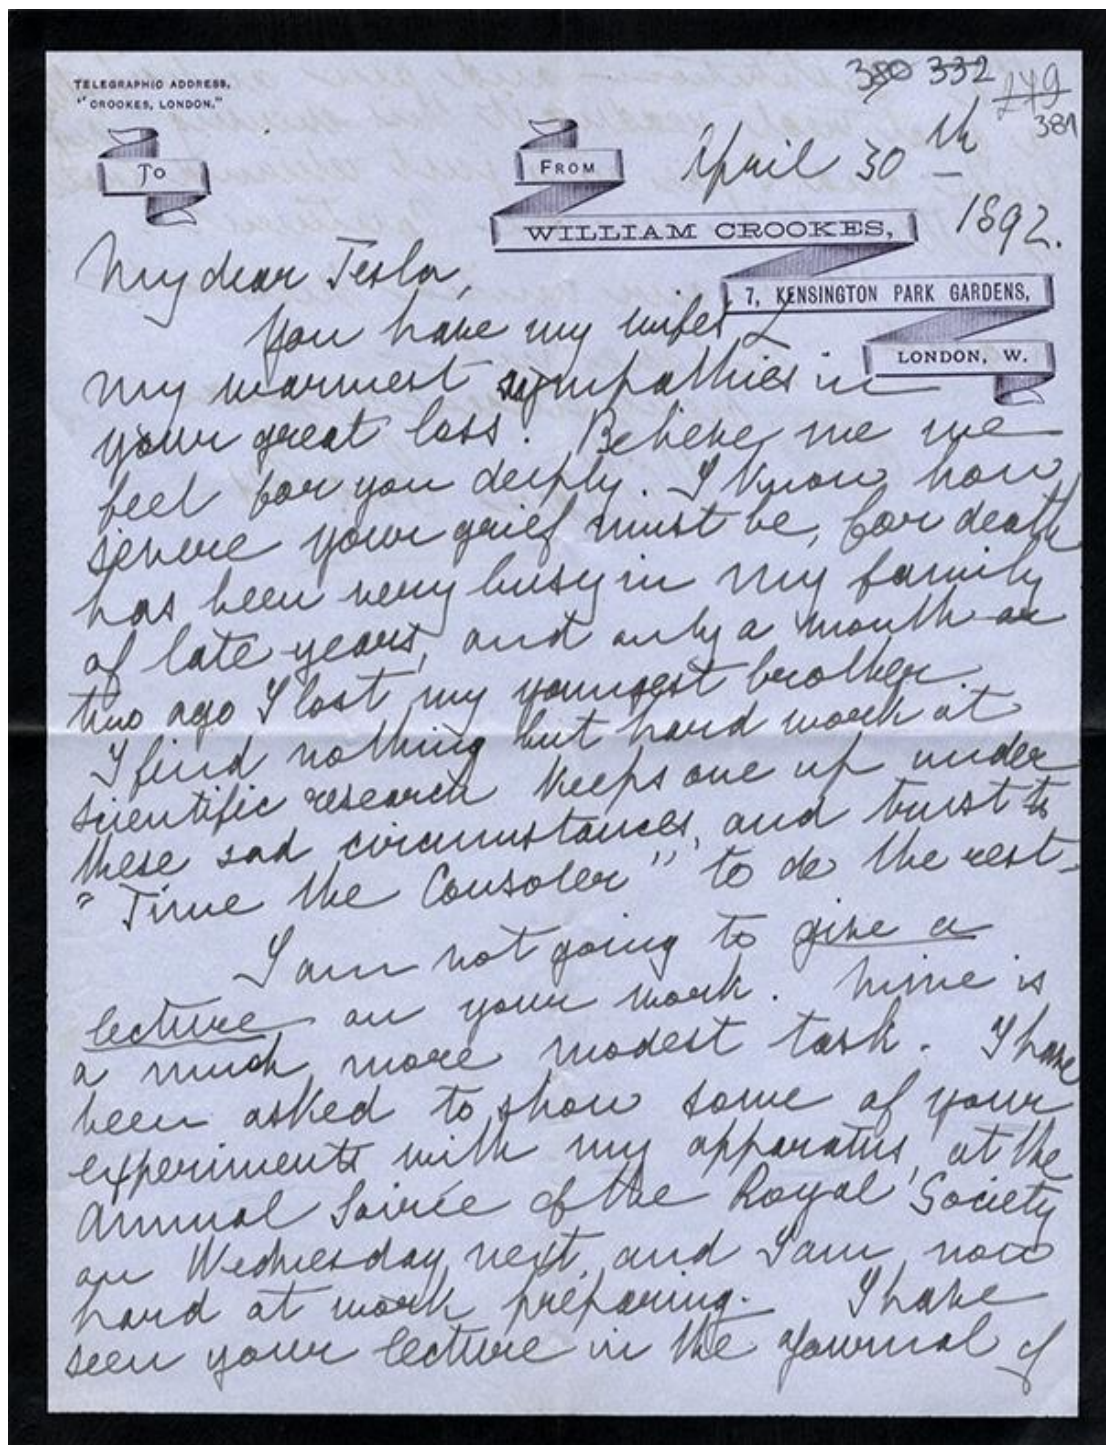 TELEGRAPHIC ADDRESS,
"CROOKES, LONDON."
380 332
249
381
TO
FROM
April 30th
WILLIAM CROOKES,
1892.
7, KENSINGTON PARK GARDENS,
LONDON, W.
My dear Tesla,
You have my wife's &
my warmest sympathies in
your great loss. Believe me we
feel for you deeply. I know how
severe your grief must be, for death
has been very busy in my family
of late years, and only a month or
two ago I lost my youngest brother.
I find nothing but hard work at
scientific research keeps one up under
these sad circumstances, and trust to
"Time the Consoler" to do the rest.
I am not going to give a
lecture on your work. Mine is
a much more modest task. I have
been asked to show some of your
experiments with my apparatus, at the
Annual Soirée of the Royal Society
on Wednesday next, and I am now
hard at work preparing. I have
seen your lecture in the Journal of